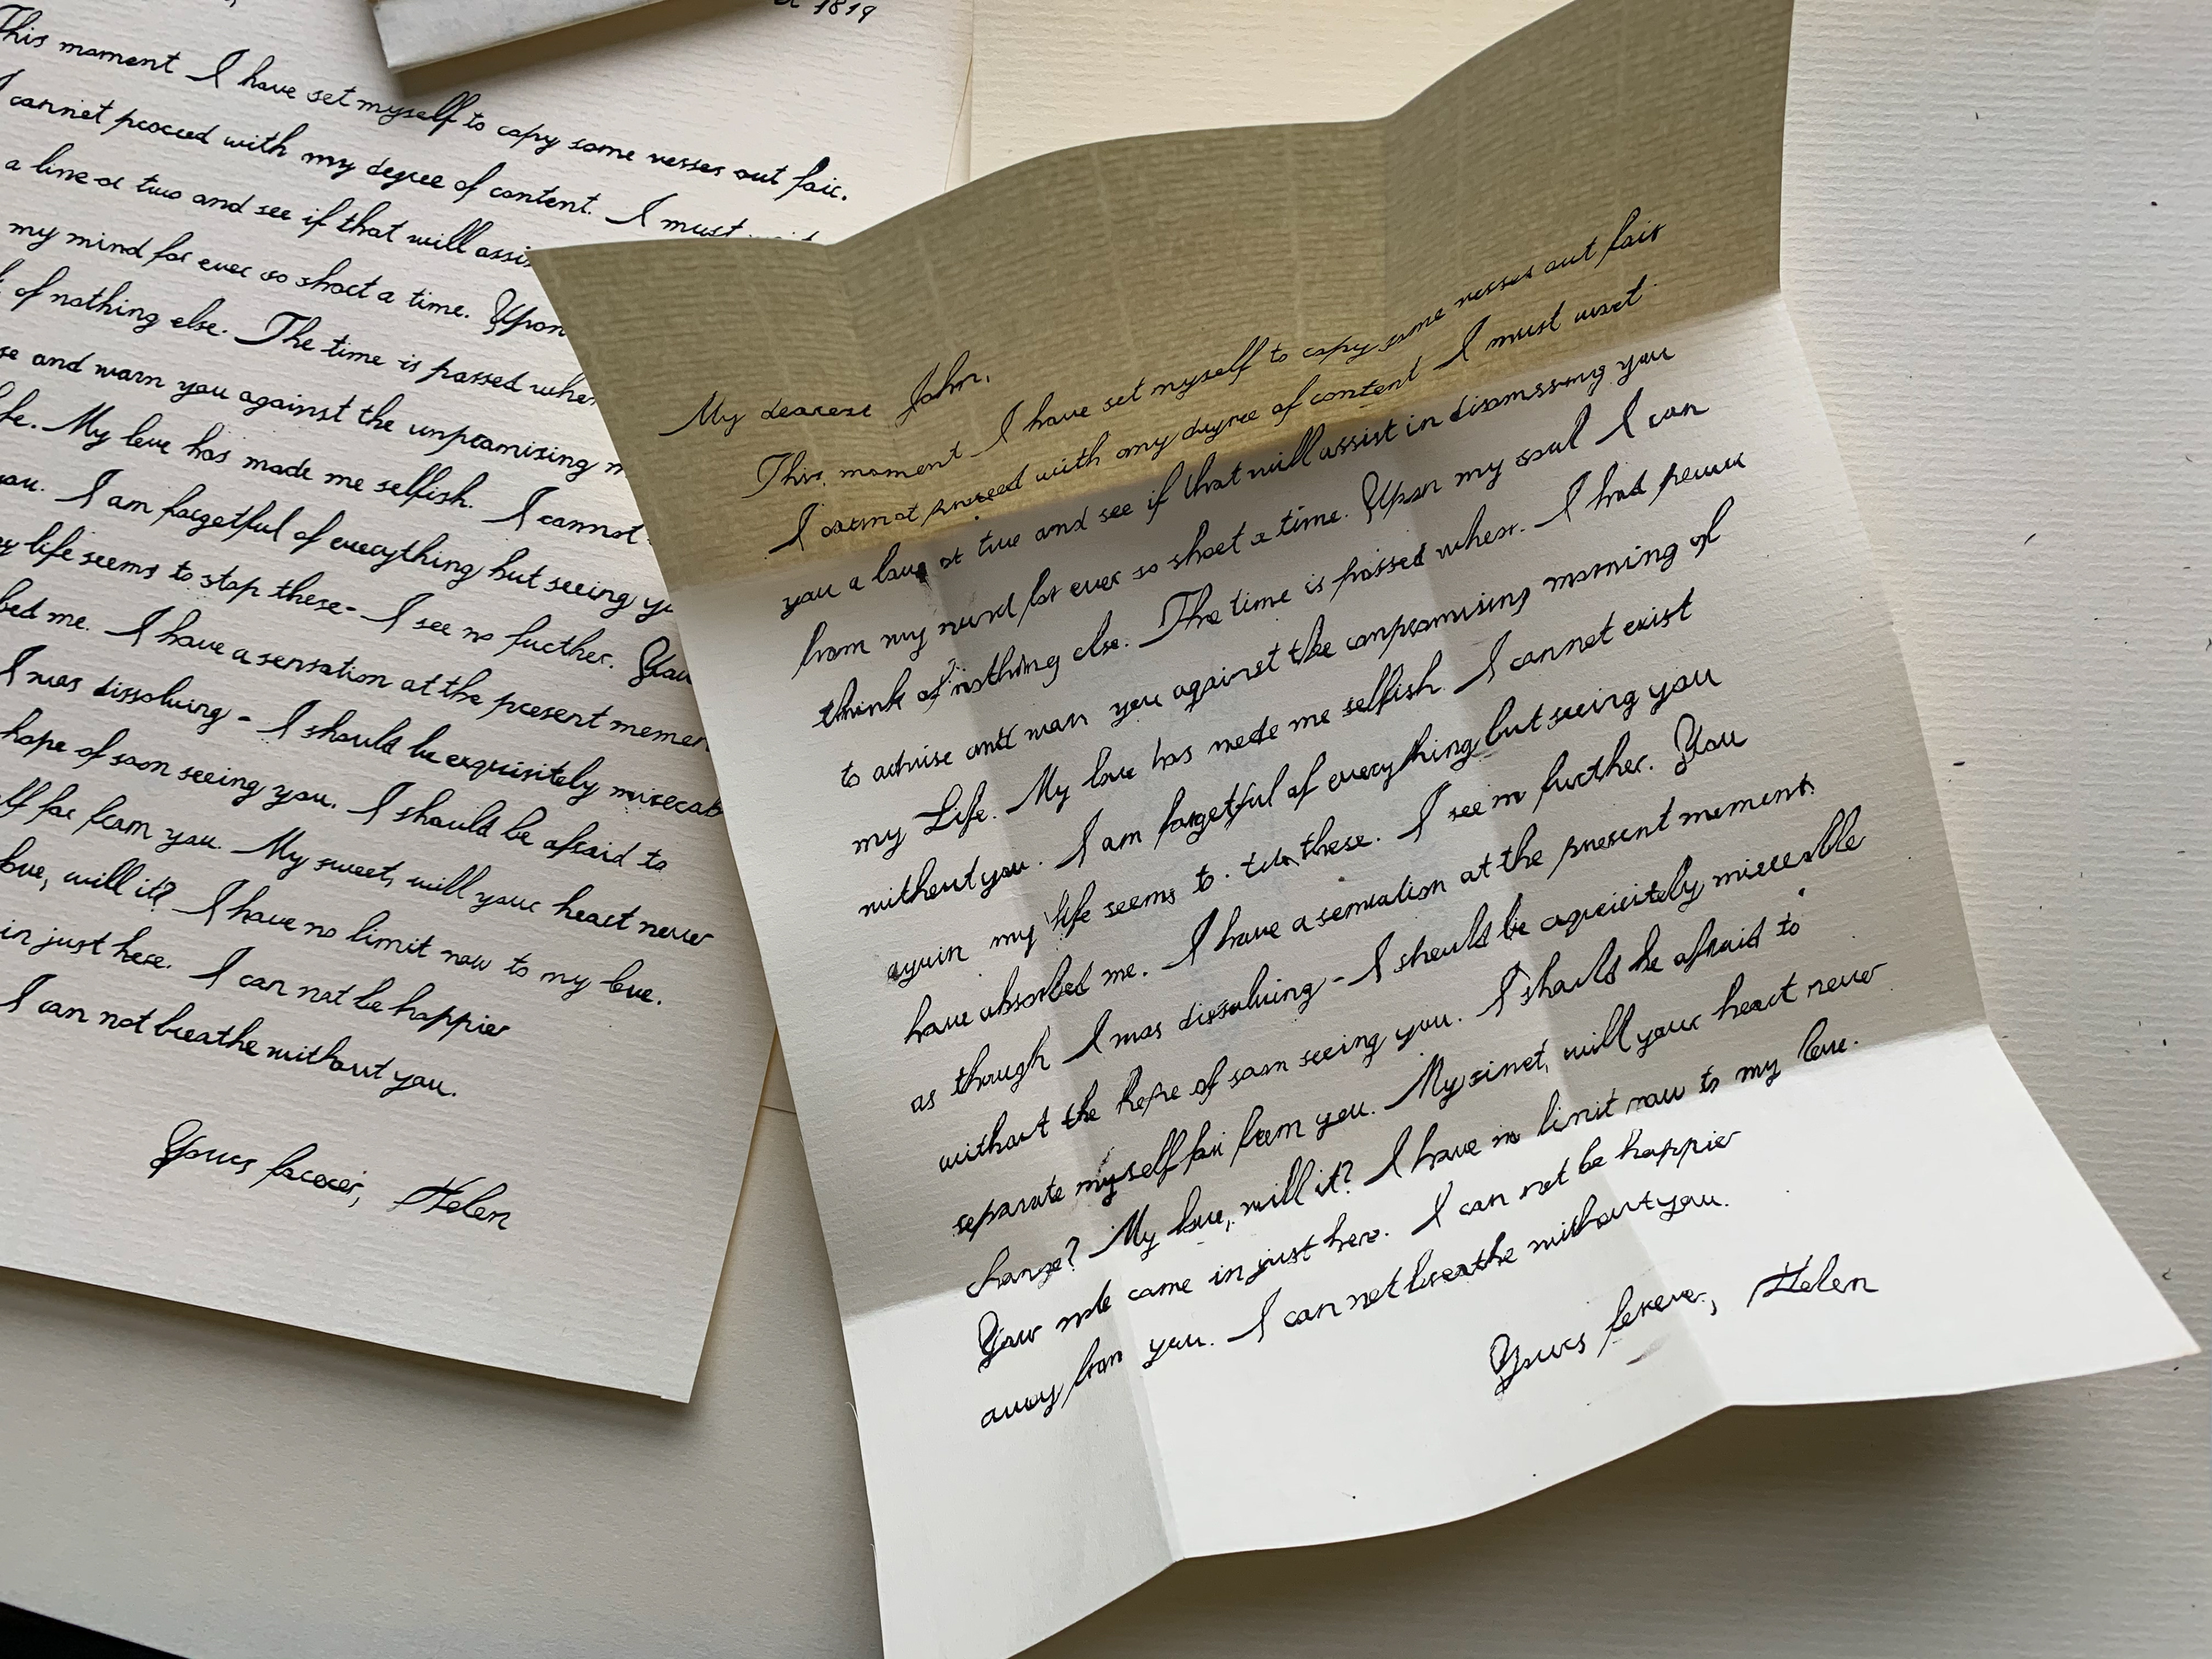 1819
This moment I have set myself to copy some verses out fair.
I cannot proceed with my degree of content. I must
a line or two and see if that will assi
my mind for ever so short a time. Upon
of nothing else. The time is passed when
se and warn you against the unpromising m
fe. My love has made me selfish. I cannot
ou. I am forgetful of everything but seeing yo
y life seems to stop there- I see no further. You
bed me. I have a sensation at the present momen
I was dissolving - I should be exquisitely miserab
hope of soon seeing you. I should be afraid to
lf far from you. My sweet, will your heart never
ove, will it? I have no limit now to my love.
in just here. I can not be happier
I can not breathe without you.
Yours forever, Helen
My dearest John,
This moment I have set myself to copy some verses out fair
I cannot proceed with my degree of content I must
you a or two and see if that will assist in dismissing you
from my mind for ever so short a time. Upon my soul I can
think of nothing else. The time is passed when. I had
to advise and warn you against the unpromising morning of
my Life. My love has made me selfish. I cannot exist
without you. I am forgetful of everything but seeing you
again my life seems to there. I see no further. You
have absorbed me. I have a sensation at the present moment
as though I was dissolving - I should be exquisitely miserable
without the hope of soon seeing you. I should be afraid to
separate myself far from you. My sweet, will your heart never
change? My love, will it? I have no limit now to my love.
Your note came in just here. I can not be happier
away from you. I can not breathe without you.
Yours forever, Helen